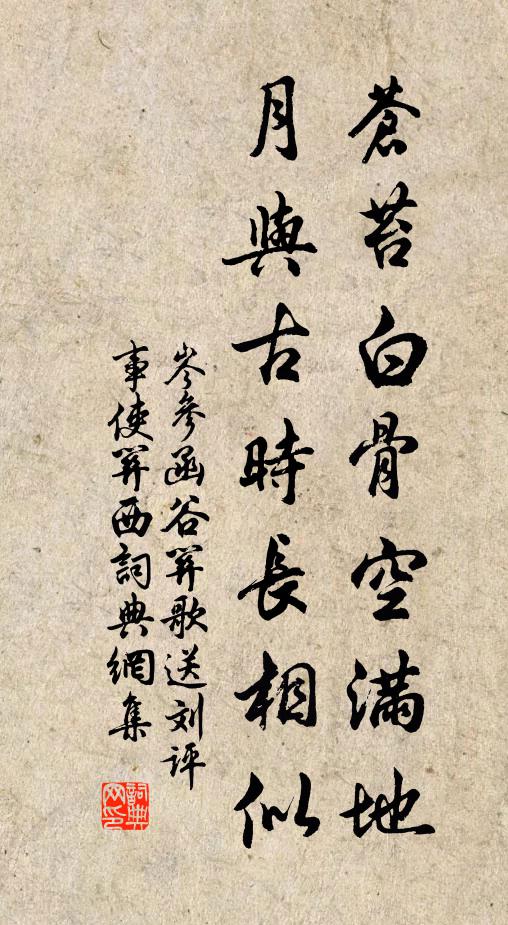 蒼苔白骨空滿地
月與古時長相似
岑參函谷關歌送刘評
事使關西詞典網集
詞典
网印